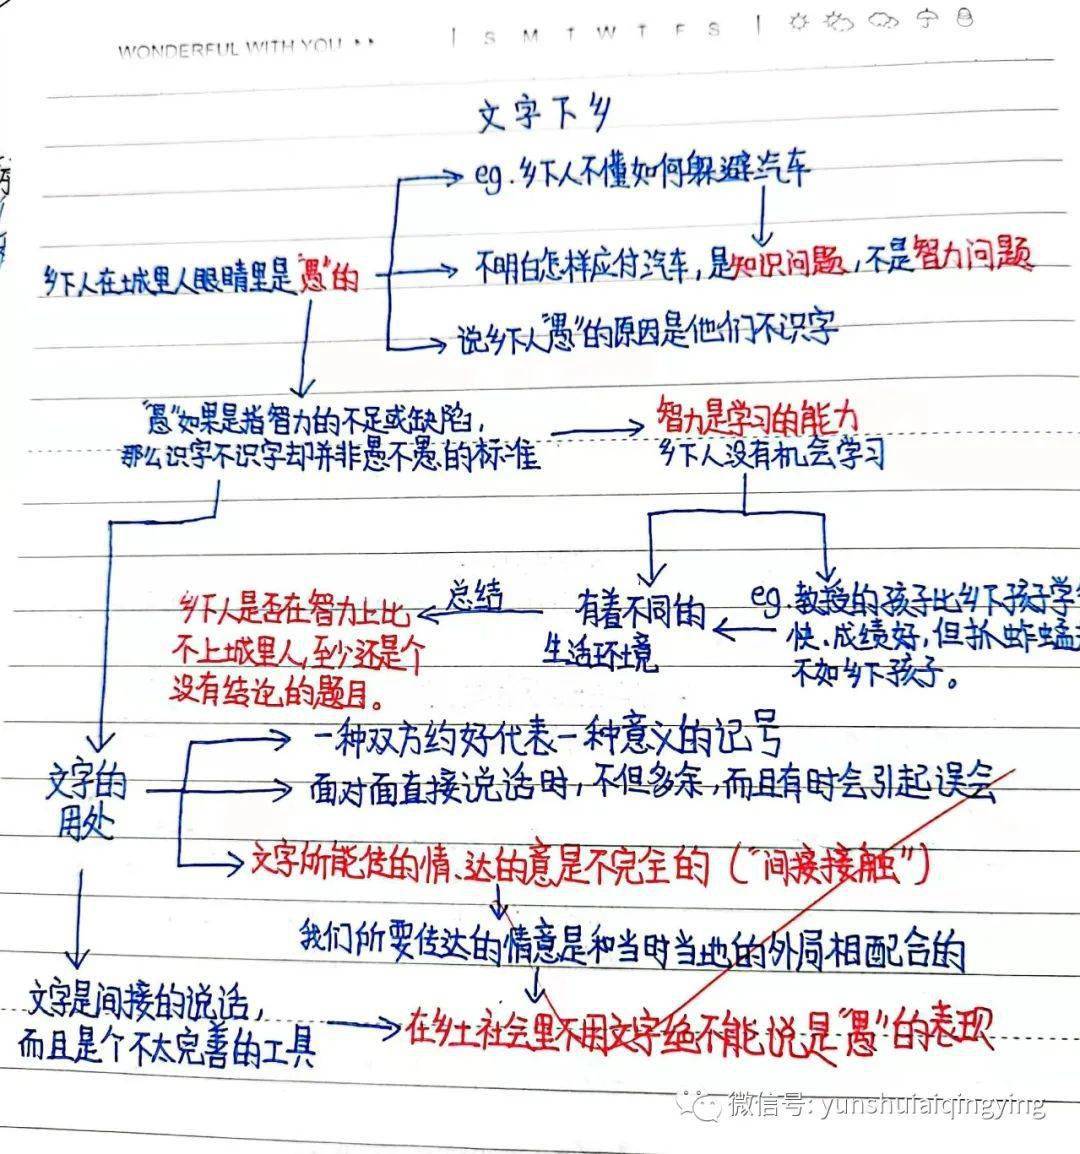 WONDERFUL WITH YOU
S M T W T F S
文字下乡
eg.乡下人不懂如何躲避汽车
乡下人在城里人眼睛里是“愚”的
不明白怎样应付汽车，是知识问题，不是智力问题
说乡下人“愚”的原因是他们不识字
“愚”如果是指智力的不足或缺陷，
那么识字不识字却并非愚不愚的标准
智力是学习的能力
乡下人没有机会学习
eg.教授的孩子比乡下孩子学
快、成绩好，但抓蚱蜢
不如乡下孩子。
有着不同的
生活环境
总结
乡下人是否在智力上比
不上城里人，至少还是个
没有结论的题目。
文字的
用处
一种双方约好代表一种意义的记号
面对面直接说话时，不但多余，而且有时会引起误会
文字所能传的情、达的意是不完全的（“间接接触”）
我们所要传达的情意是和当时当地的外局相配合的
文字是间接的说话，
而且是个不太完善的工具
在乡土社会里不用文字绝不能说是“愚”的表现
微信号: yunshuiaiqingying